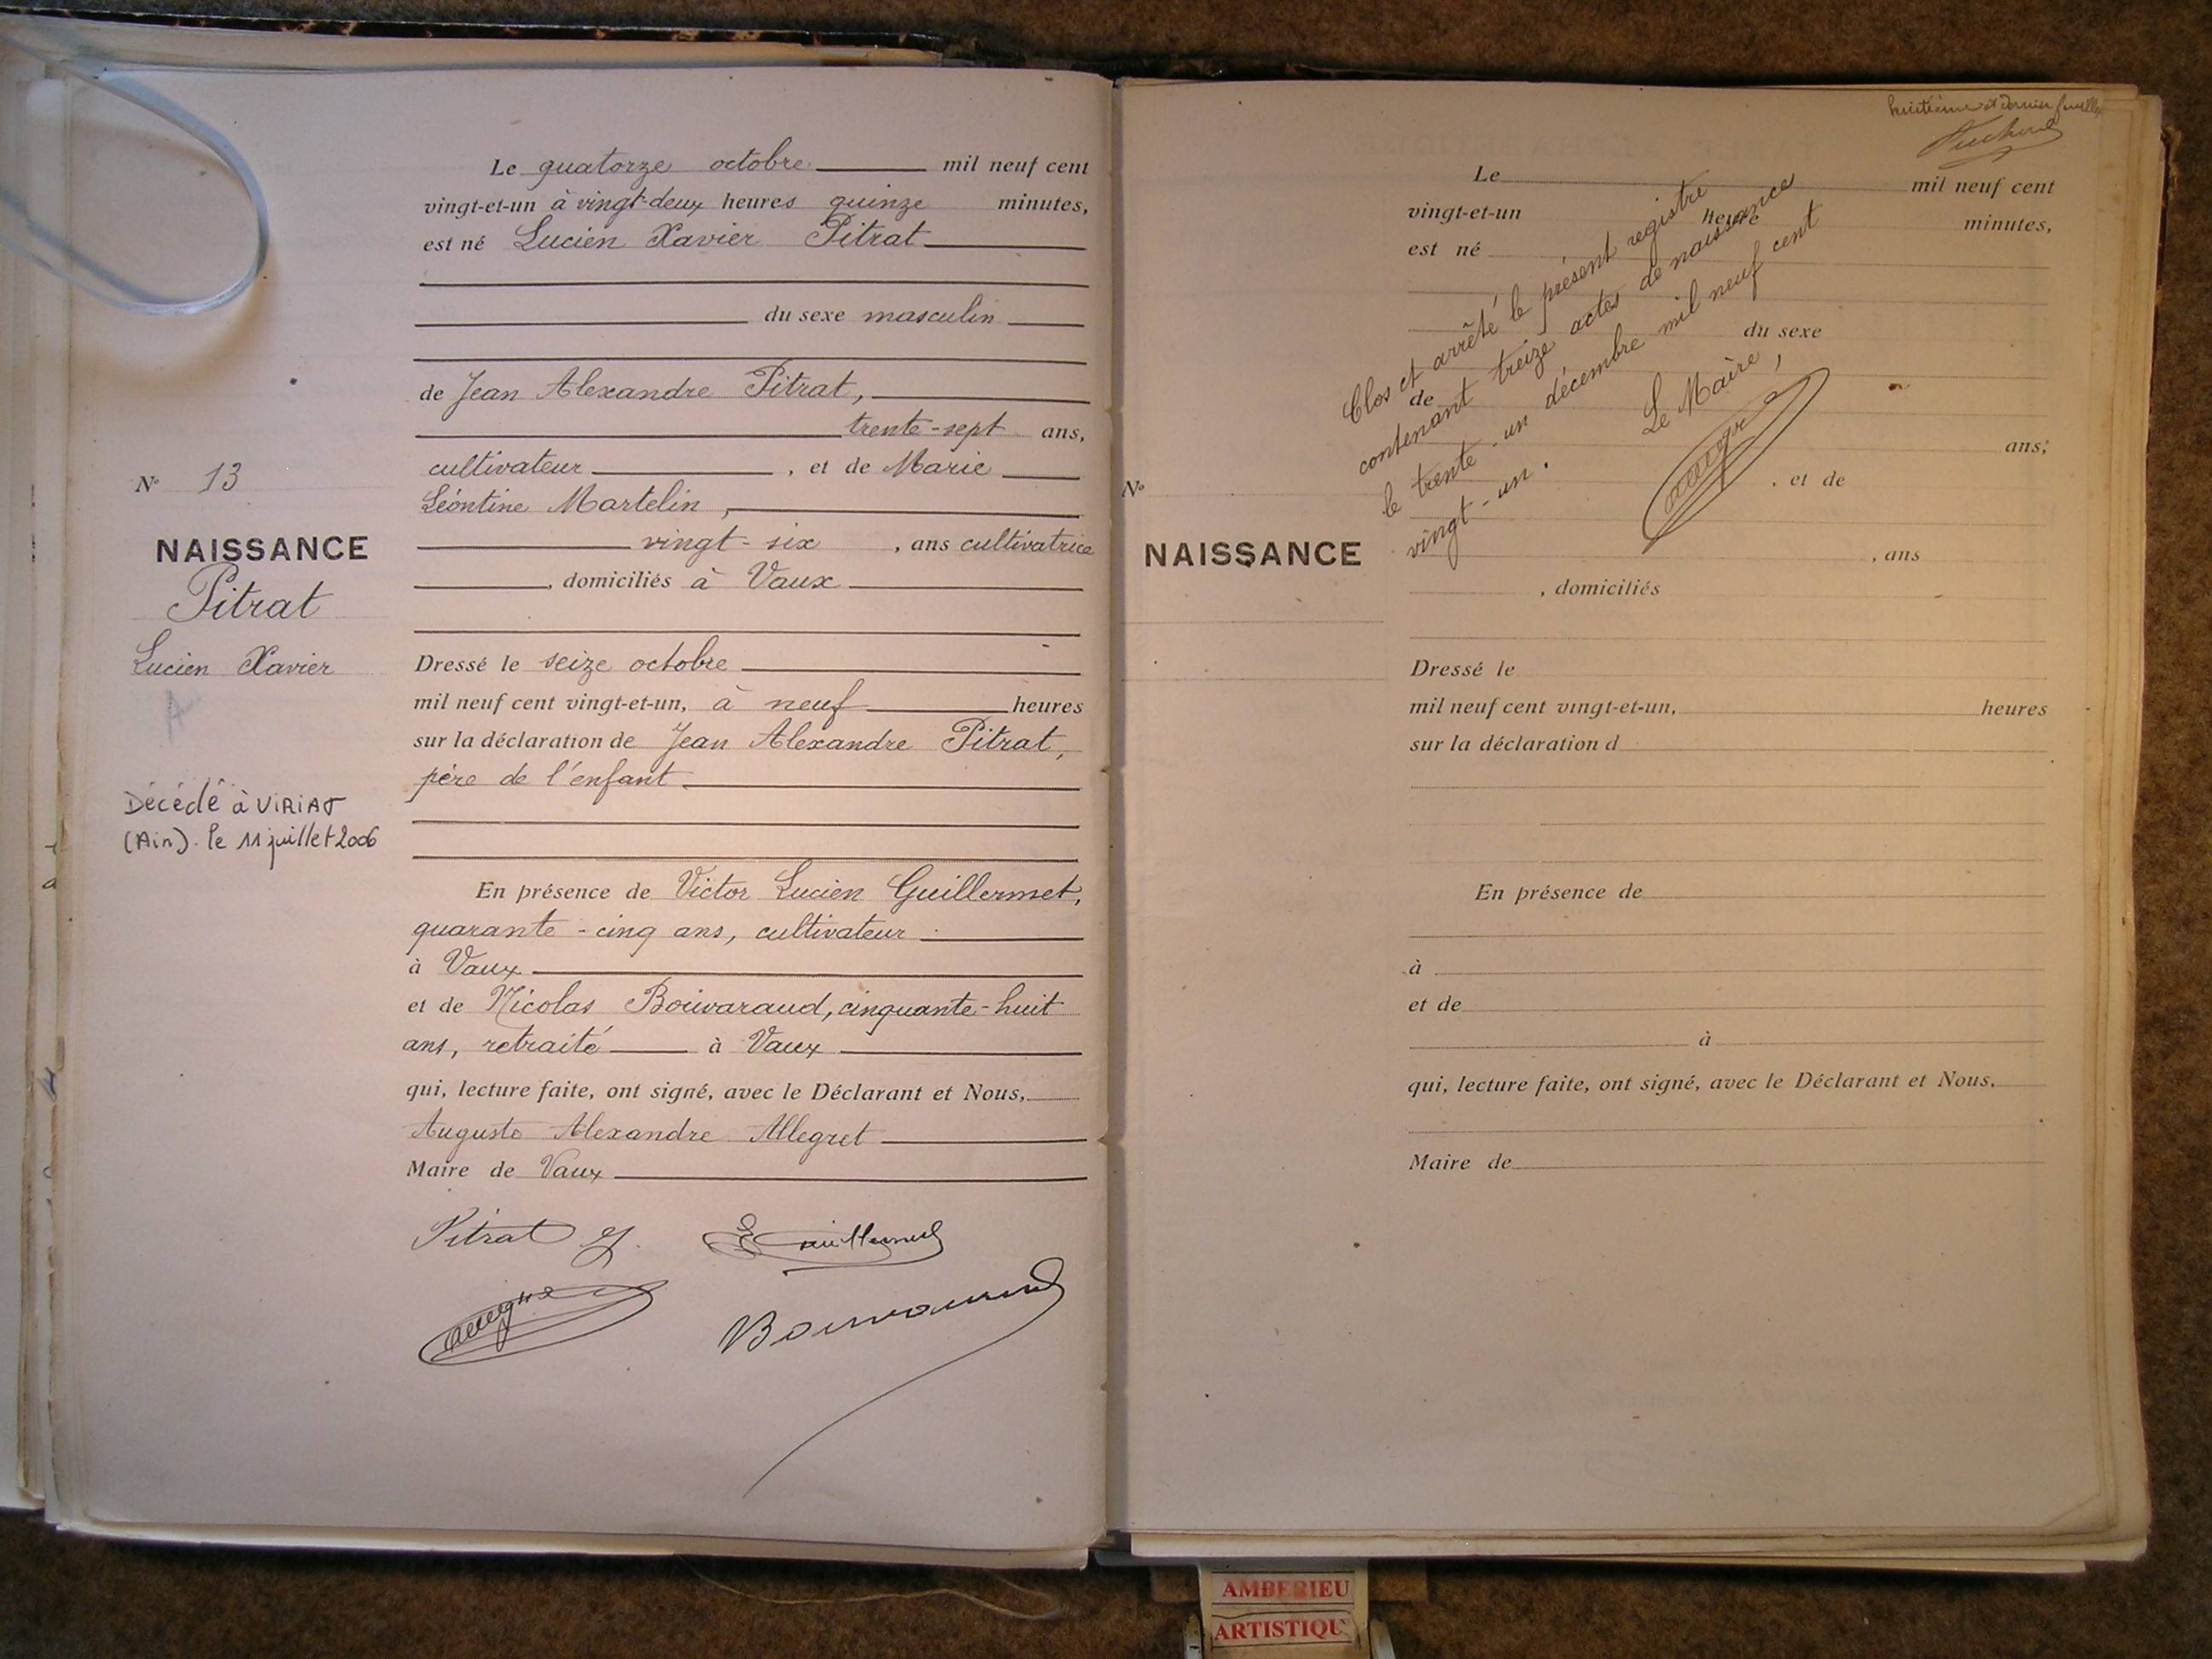 Le quatorze octobre mil neuf cent
vingt-et-un à vingt-deux heures quinze minutes,
est né Lucien Xavier Pitrat
du sexe masculin
de Jean Alexandre Pitrat,
trente-sept ans,
cultivateur , et de Marie
Léontine Martelin,
vingt-six , ans cultivatrice
, domiciliés à Vaux
Dressé le seize octobre
mil neuf cent vingt-et-un, à neuf heures
sur la déclaration de Jean Alexandre Pitrat,
père de l'enfant
En présence de Victor Lucien Guillermet,
quarante-cinq ans, cultivateur
à Vaux
et de Nicolas Bouvaraud, cinquante-huit
ans, retraité à Vaux
qui, lecture faite, ont signé, avec le Déclarant et Nous,
Auguste Alexandre Allegret
Maire de Vaux
Pitrat
N° 13
NAISSANCE
Pitrat
Lucien Xavier
Décédé à VIRIAT
(Ain). le 11 juillet 2006
huitième et dernier feuillet
Le mil neuf cent
vingt-et-un heure minutes,
est né
du sexe
de
ans;
, et de
, ans
, domiciliés
Dressé le
mil neuf cent vingt-et-un, heures
sur la déclaration d
En présence de
à
et de
à
qui, lecture faite, ont signé, avec le Déclarant et Nous,
Maire de
N°
NAISSANCE
Clos et arrêté le présent registre
contenant treize actes de naissance
le trente-un décembre mil neuf cent
vingt-un.
Le Maire,
AMBERIEU
ARTISTIQU